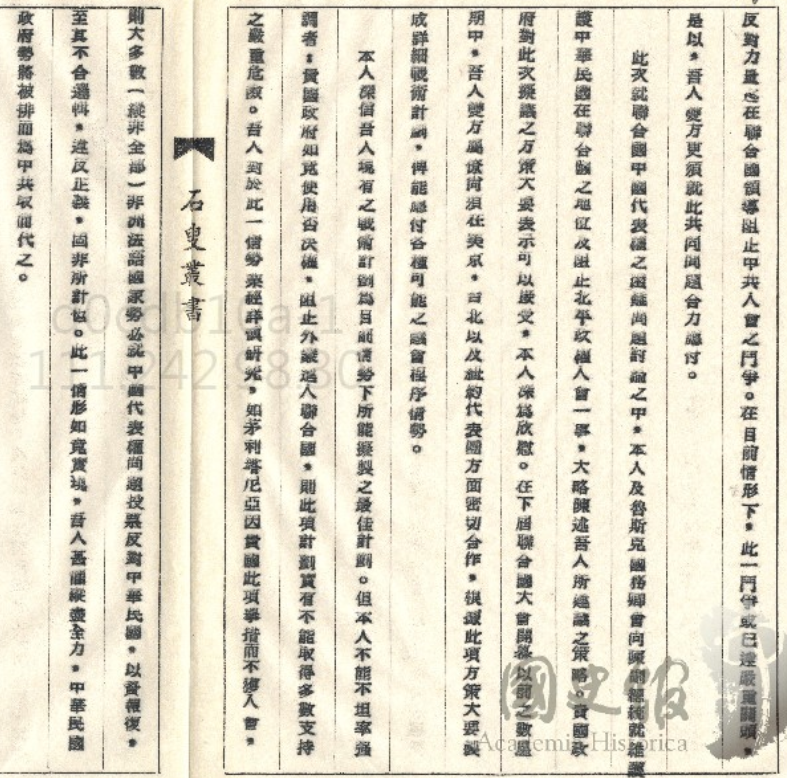 反對力量應在聯合國領導阻止中共入會之鬥爭。在目前情形下，此一鬥爭或已達嚴重關頭，
是以，吾人雙方更須就此共同問題合力應付。
此次就聯合國中國代表權之困難問題討論之中，本人及魯斯克國務卿曾向陳副總統就維護
護中華民國在聯合國之地位及阻止北平政權入會一事，大略陳述吾人所建議之策略。貴國政
府對此次擬議之方策大要表示可以接受，本人深為欣慰。在下屆聯合國大會開幕以前之數星
期中，吾人雙方屬僚尚須在美京，台北以及紐約代表團方面密切合作，根據此項方策大要製
成詳細戰術計劃，俾能應付各種可能之議會程序情勢。
本人深信吾人現有之戰術計劃為目前情勢下所能擬製之最佳計劃。但本人不能不坦率強
調者，貴國政府如竟使用否決權，阻止外蒙進入聯合國，則此項計劃實有不能取得多數支持
之嚴重危險。吾人對於此一情勢業經詳慎研究，如茅利塔尼亞因貴國此項舉措而不獲入會，
石叟叢書
則大多數（縱非全部）非洲法語國家勢必就中國代表權問題投票反對中華民國，以資報復，
至其不合邏輯，違反正義，固非所計也。此一情形如竟實現，吾人甚恐縱盡全力，中華民國
政府勢將被排而為中共取而代之。
c0cdb10a-1
111.242.98.80
國史館
Academia Historica